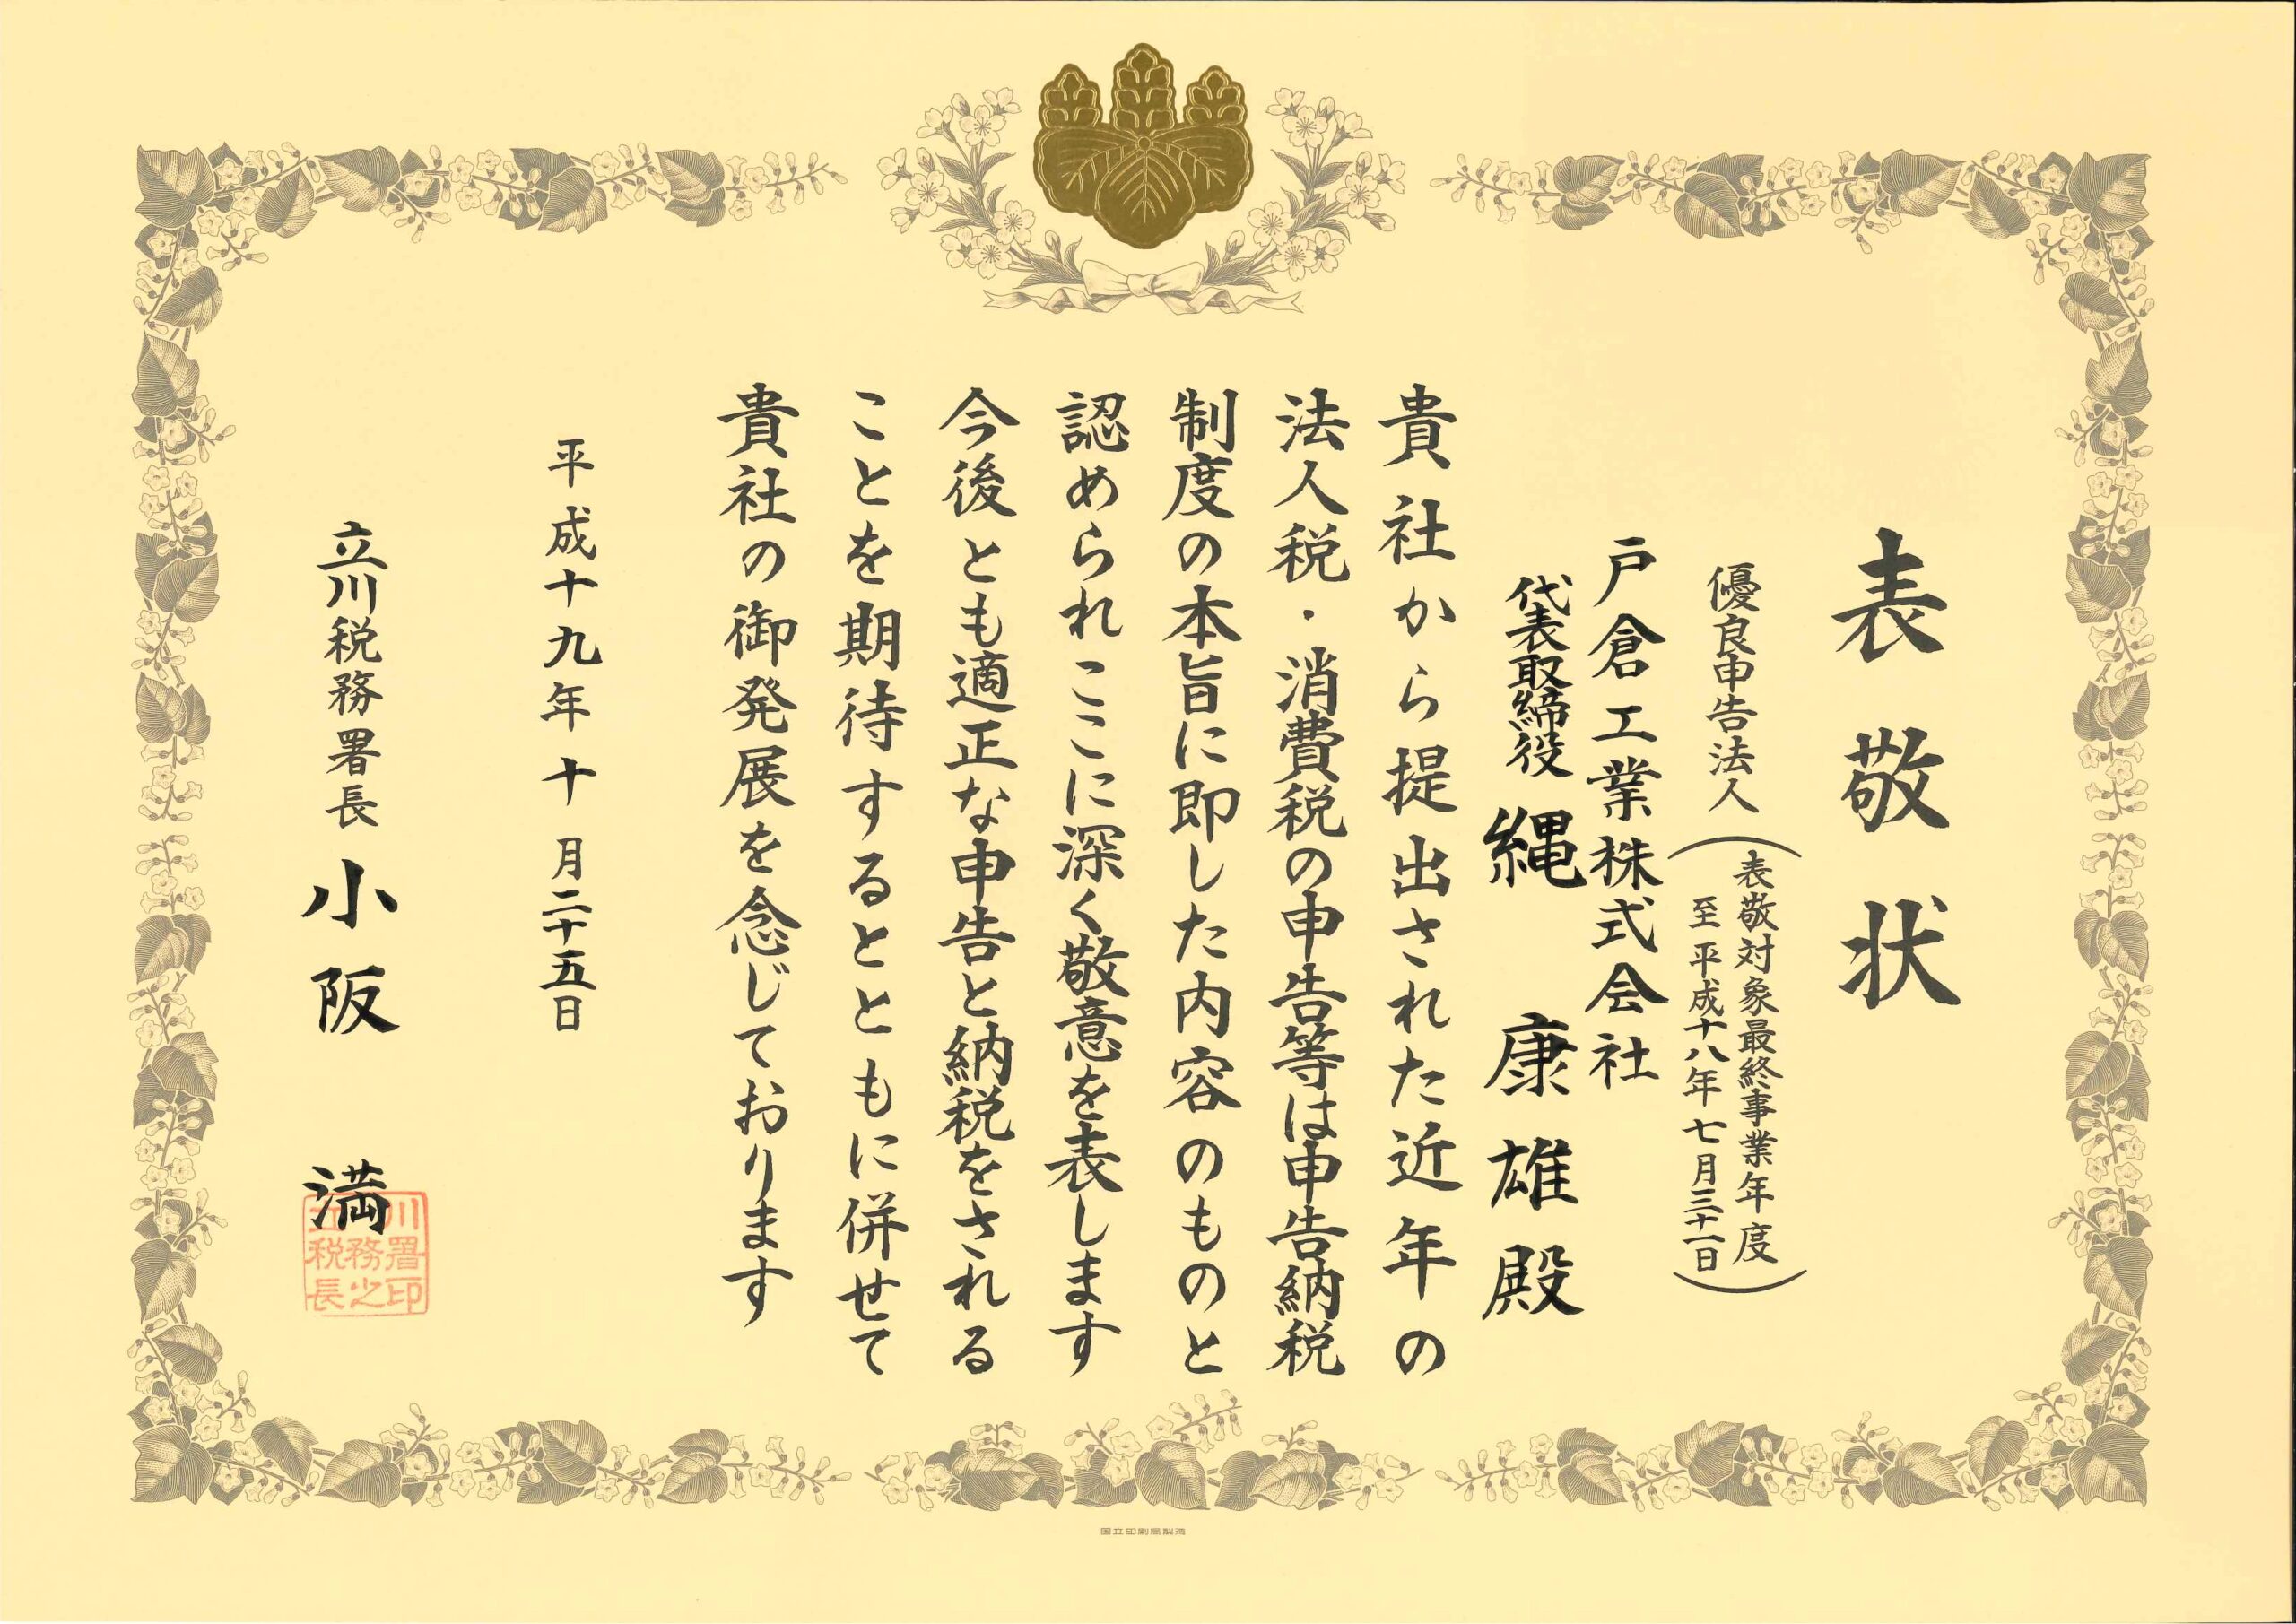 表敬状
優良申告法人
（表敬対象最終事業年度
至平成十八年七月三十一日）
戸倉工業株式会社
代表取締役 縄 康雄殿
貴社から提出された近年の
法人税・消費税の申告等は申告納税
制度の本旨に即した内容のものと
認められここに深く敬意を表します
今後とも適正な申告と納税をされる
ことを期待するとともに併せて
貴社の御発展を念じております
平成十九年十月二十五日
立川税務署長 小阪 満
立川
税務署
長之印
国立印刷局製造